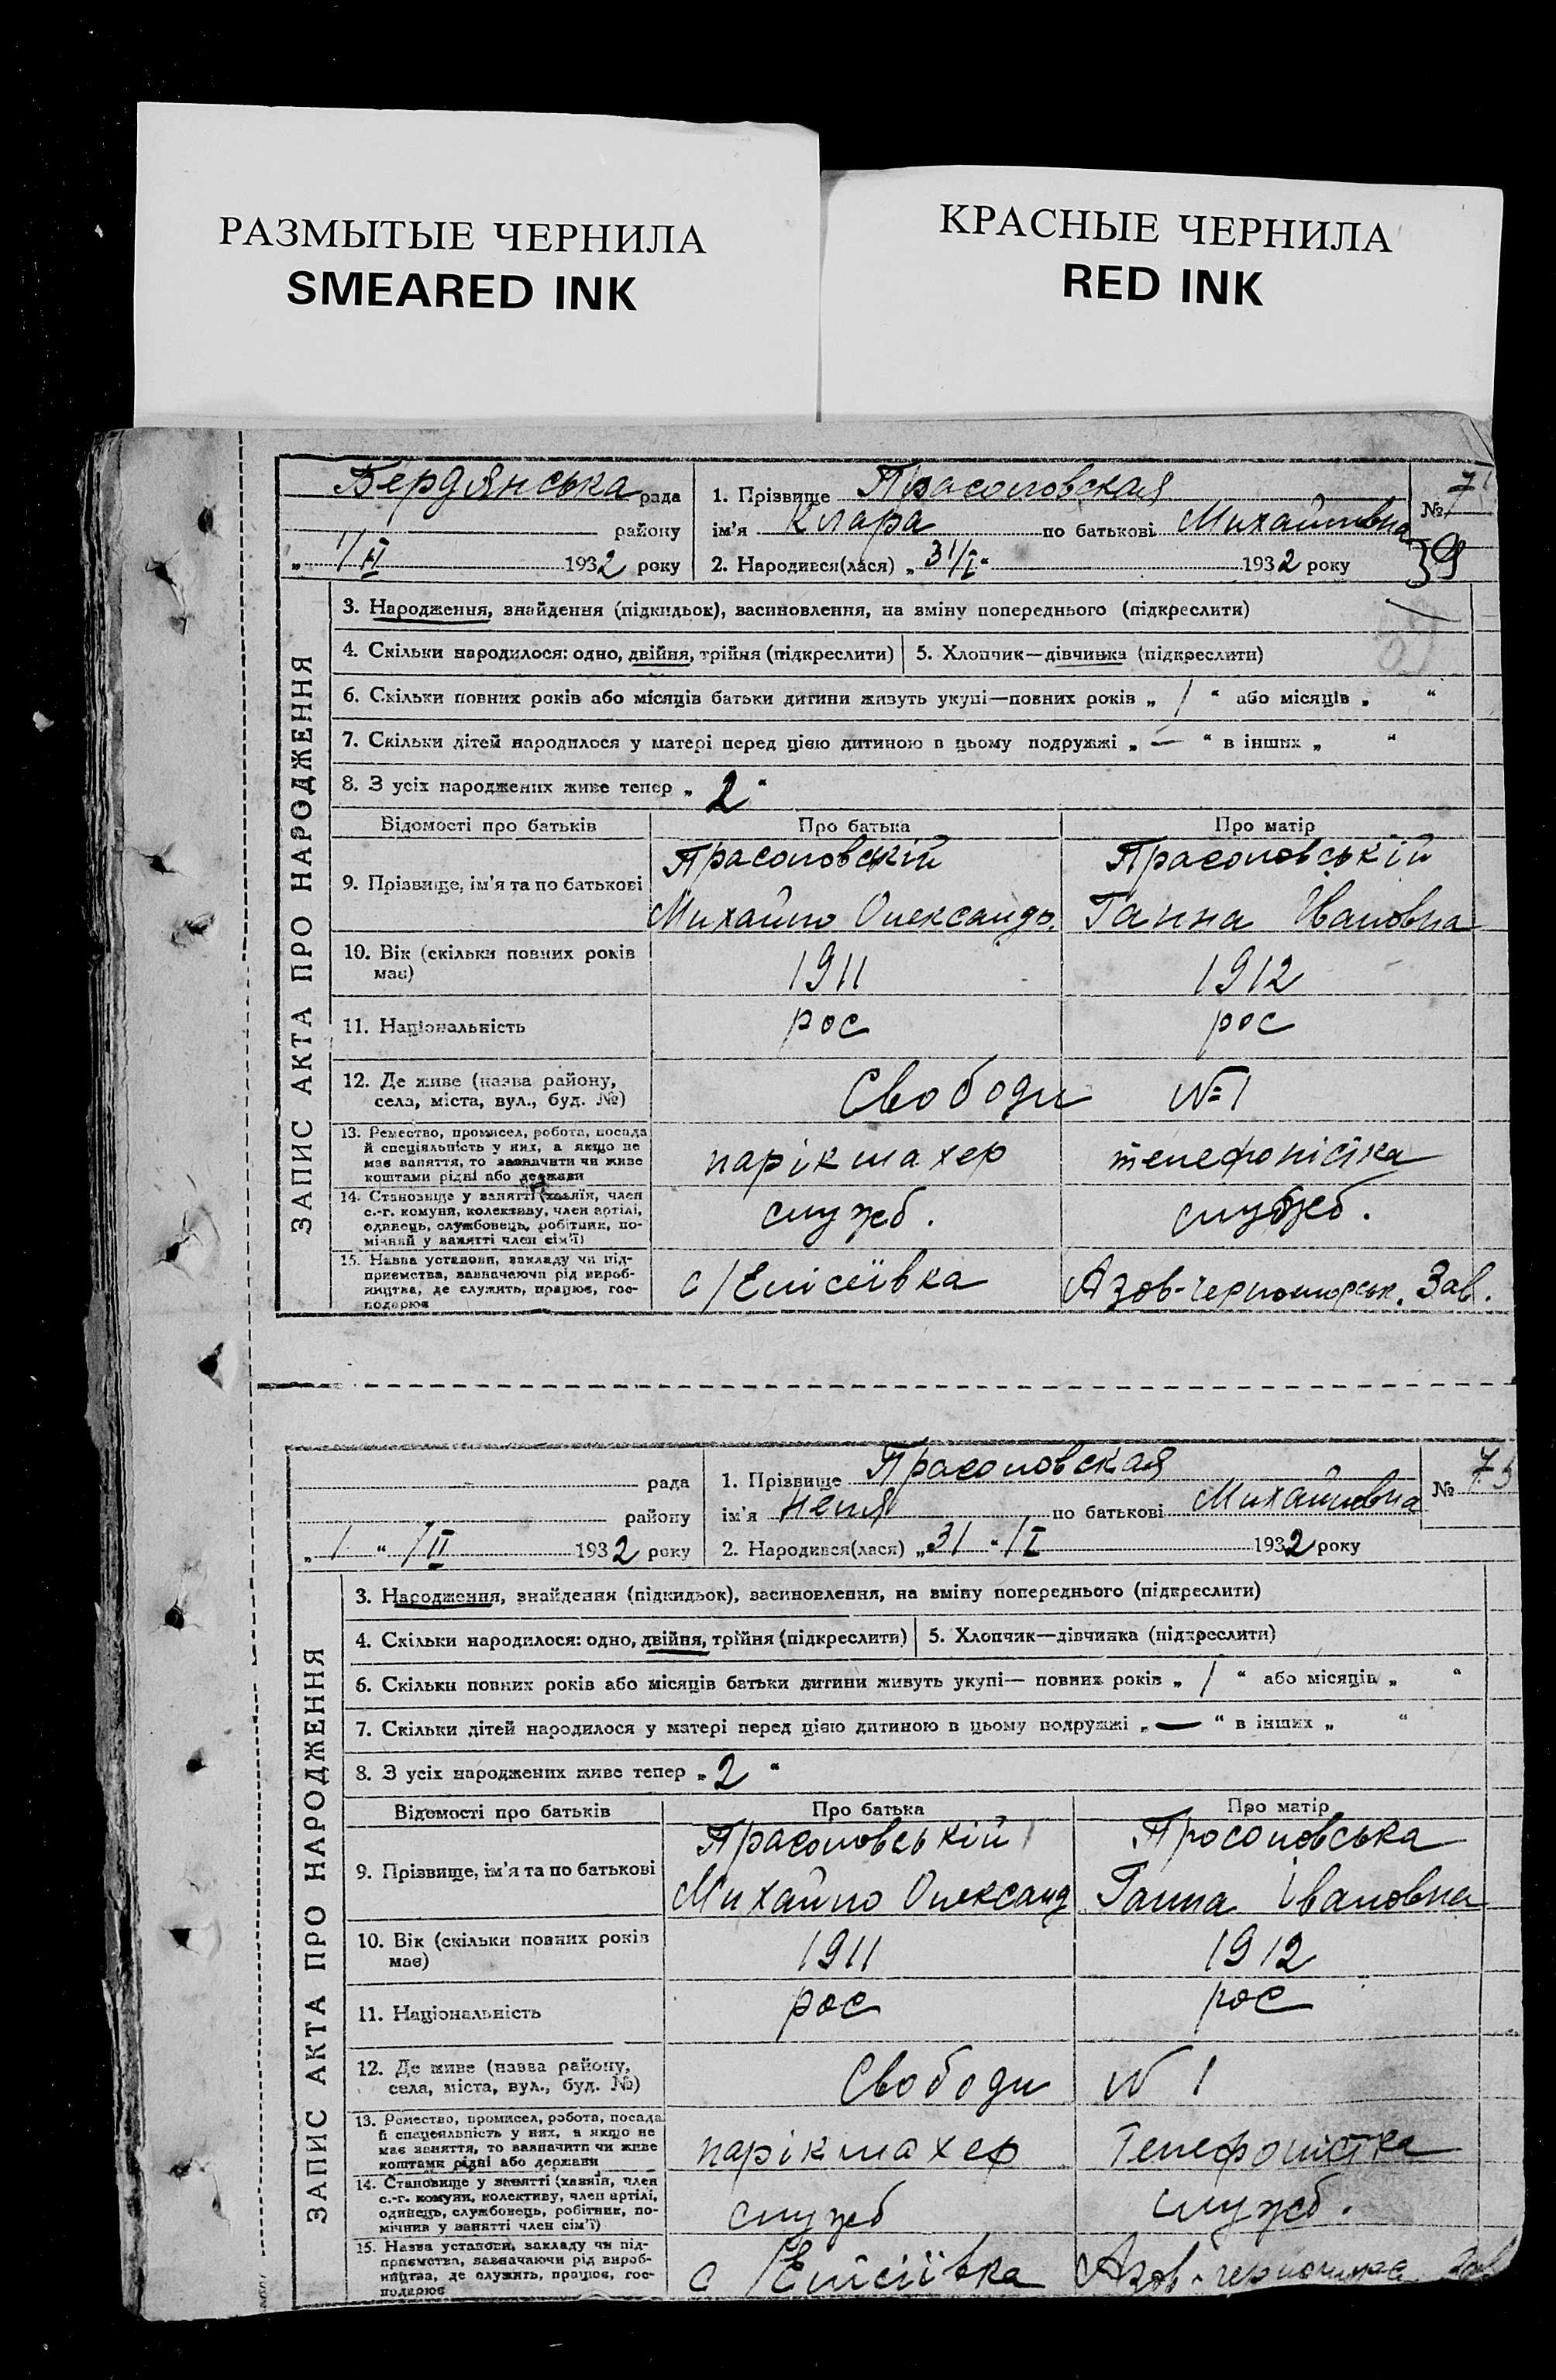 РАЗМЫТЫЕ ЧЕРНИЛА
SMEARED INK
КРАСНЫЕ ЧЕРНИЛА
RED INK
Бердянська рада
району
„ 1/II 1932 року
1. Прізвище Прасоловская
ім'я Клара по батькові Михайловна
2. Народився(лася) „31/I“ 1932 року
№ 7
39
ЗАПИС АКТА ПРО НАРОДЖЕННЯ
3. Народження, знайдення (підкидьок), всиновлення, на зміну попереднього (підкреслити)
4. Скільки народилося: одно, двійня, трійня (підкреслити) 5. Хлопчик—дівчинка (підкреслити)
6. Скільки повних років або місяців батьки дитини живуть укупі—повних років „ 1 “ або місяців „ “
7. Скільки дітей народилося у матері перед цією дитиною в цьому подружжі „ — “ в інших „ “
8. З усіх народжених живе тепер „ 2 “
Відомості про батьків Про батька Про матір
9. Прізвище, ім'я та по батькові
Прасоловській
Михайло Олександр.
Прасоловській
Ганна Івановна
10. Вік (скільки повних років має) 1911 1912
11. Національність рос рос
12. Де живе (назва району,
села, міста, вул., буд. №) Свободи № 1
13. Ремество, промисел, робота, посада
й спеціяльність у них, а якщо не
має заняття, то зазначити чи живе
коштами рідні або держави
парікмахер телефоністка
14. Становище у занятті (хазяїн, член
с.-г. комуни, колективу, член артілі,
одинець, службовець, робітник, по-
мічний у занятті член сім'ї)
служб. служб.
15. Назва установи, закладу чи під-
приємства, зазначаючи рід вироб-
ництва, де служить, працює, гос-
подарює
с/Елісеївка Азов-черноморськ. Зав.
рада
району
„ 1 “ /II 1932 року
1. Прізвище Прасоловская
ім'я Неля по батькові Михайловна
2. Народився(лася) „31 “ /I 1932 року
№ 73
ЗАПИС АКТА ПРО НАРОДЖЕННЯ
3. Народження, знайдення (підкидьок), всиновлення, на зміну попереднього (підкреслити)
4. Скільки народилося: одно, двійня, трійня (підкреслити) 5. Хлопчик—дівчинка (підкреслити)
6. Скільки повних років або місяців батьки дитини живуть укупі— повних років „ 1 “ або місяців „ “
7. Скільки дітей народилося у матері перед цією дитиною в цьому подружжі „ — “ в інших „ “
8. З усіх народжених живе тепер „ 2 “
Відомості про батьків Про батька Про матір
9. Прізвище, ім'я та по батькові
Прасоловській
Михайло Олександ
Просоловська
Ганна Івановна
10. Вік (скільки повних років має) 1911 1912
11. Національність рос рос
12. Де живе (назва району,
села, міста, вул., буд. №) Свободи № 1
13. Ремество, промисел, робота, посада
й спеціяльність у них, а якщо не
має заняття, то зазначити чи живе
коштами рідні або держави
парікмахер Телефоністка
14. Становище у занятті (хазяїн, член
с.-г. комуни, колективу, член артілі,
одинець, службовець, робітник, по-
мічнив у занятті член сім'ї)
служб служб.
15. Назва установи, закладу чи під-
приємства, зазначаючи рід вироб-
ництва, де служить, працює, гос-
подарює
с /Елісіївка Азов-